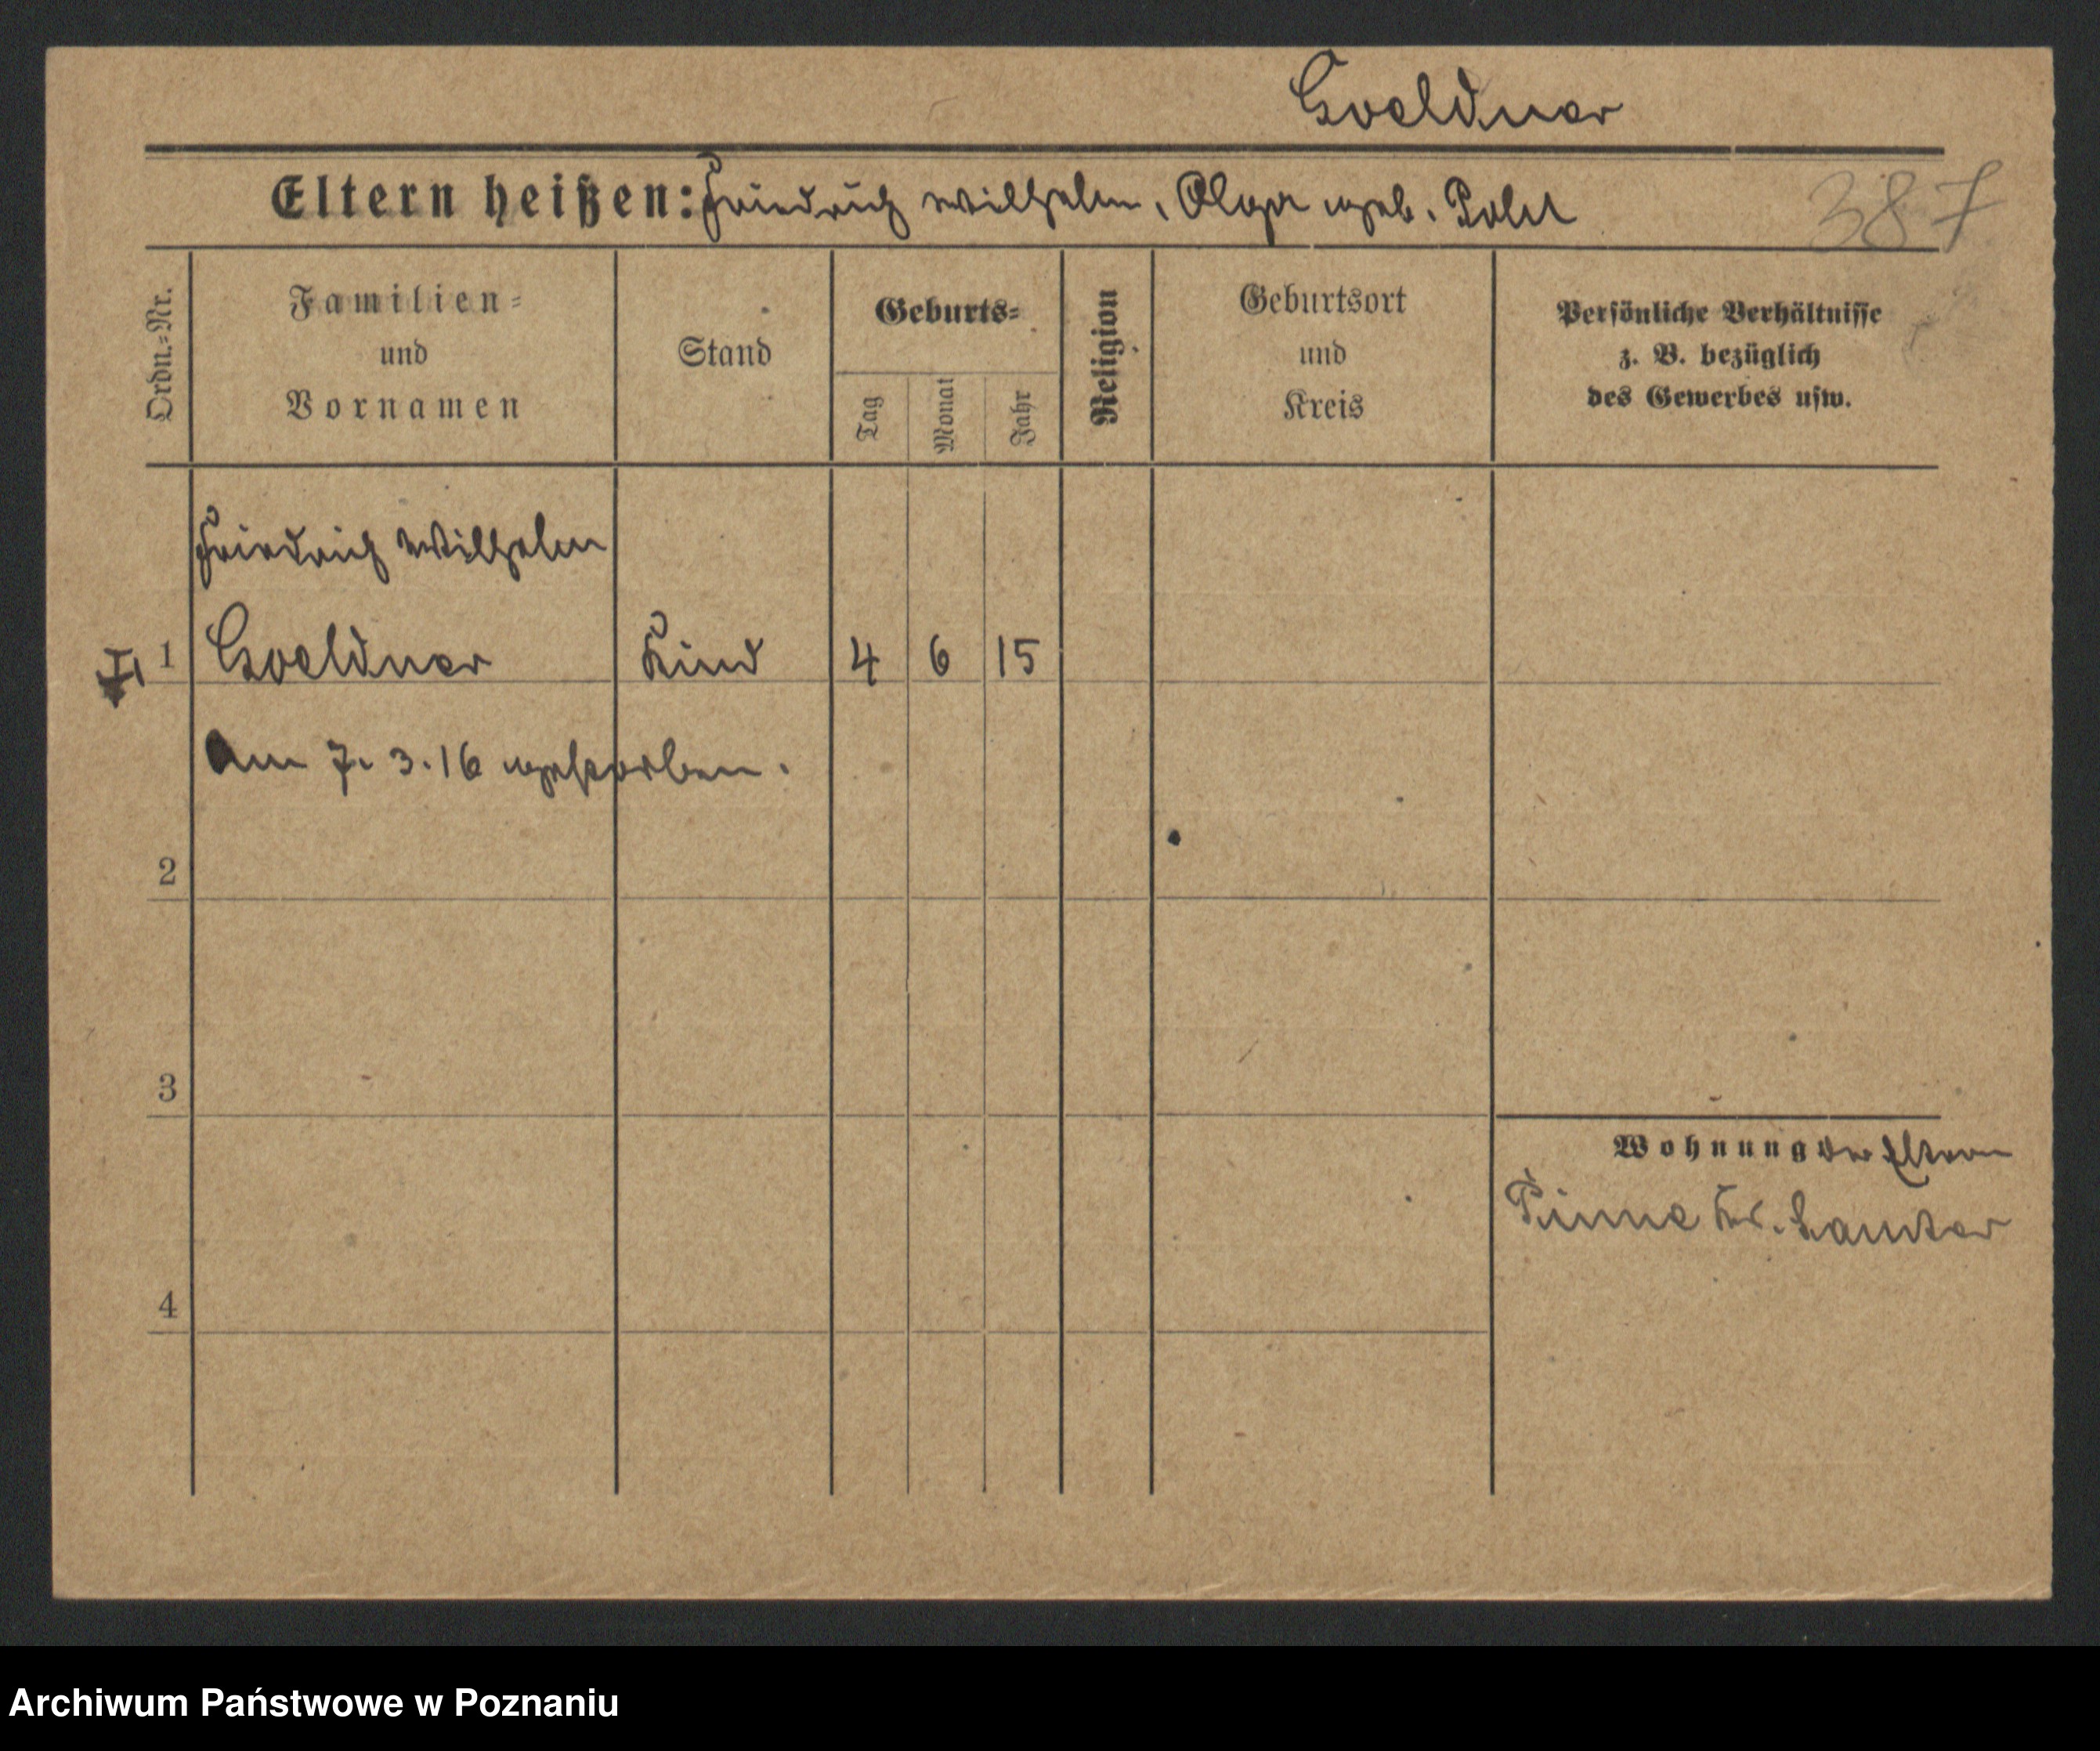 Goeldner
Eltern heißen: Friedrich Wilhelm, Olga geb. Pohl
387
Ordn.-Nr.
Familien-
und
Vornamen
Stand
Geburts-
Tag
Monat
Jahr
Religion
Geburtsort
und
Kreis
Persönliche Verhältnisse
z. B. bezüglich
des Gewerbes usw.
Friedrich Wilhelm
1 Goeldner Kind 4 6 15
Am 7. 3. 16 gestorben.
2
3
Wohnung der Eltern
Pinne Kr. Samter
4
Archiwum Państwowe w Poznaniu